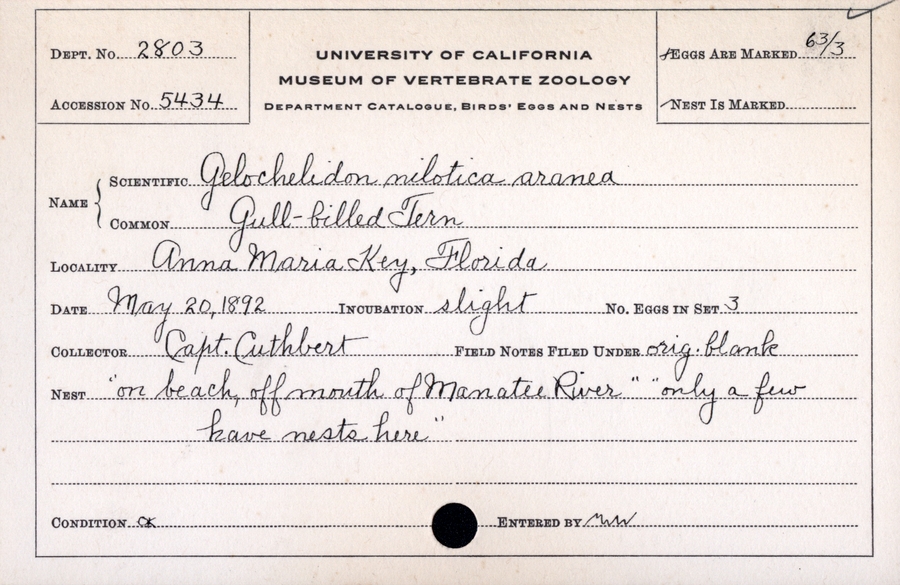 DEPT. No. 2803
ACCESSION No. 5434
UNIVERSITY OF CALIFORNIA
MUSEUM OF VERTEBRATE ZOOLOGY
DEPARTMENT CATALOGUE, BIRDS' EGGS AND NESTS
EGGS ARE MARKED 63/3
NEST IS MARKED
NAME
SCIENTIFIC Gelochelidon nilotica aranea
COMMON Gull-billed Tern
LOCALITY Anna Maria Key, Florida
DATE May 20, 1892 INCUBATION slight NO. EGGS IN SET 3
COLLECTOR Capt. Cuthbert FIELD NOTES FILED UNDER orig. blank
NEST "on beach, off mouth of Manatee River" "only a few
have nests here"
CONDITION ok ENTERED BY